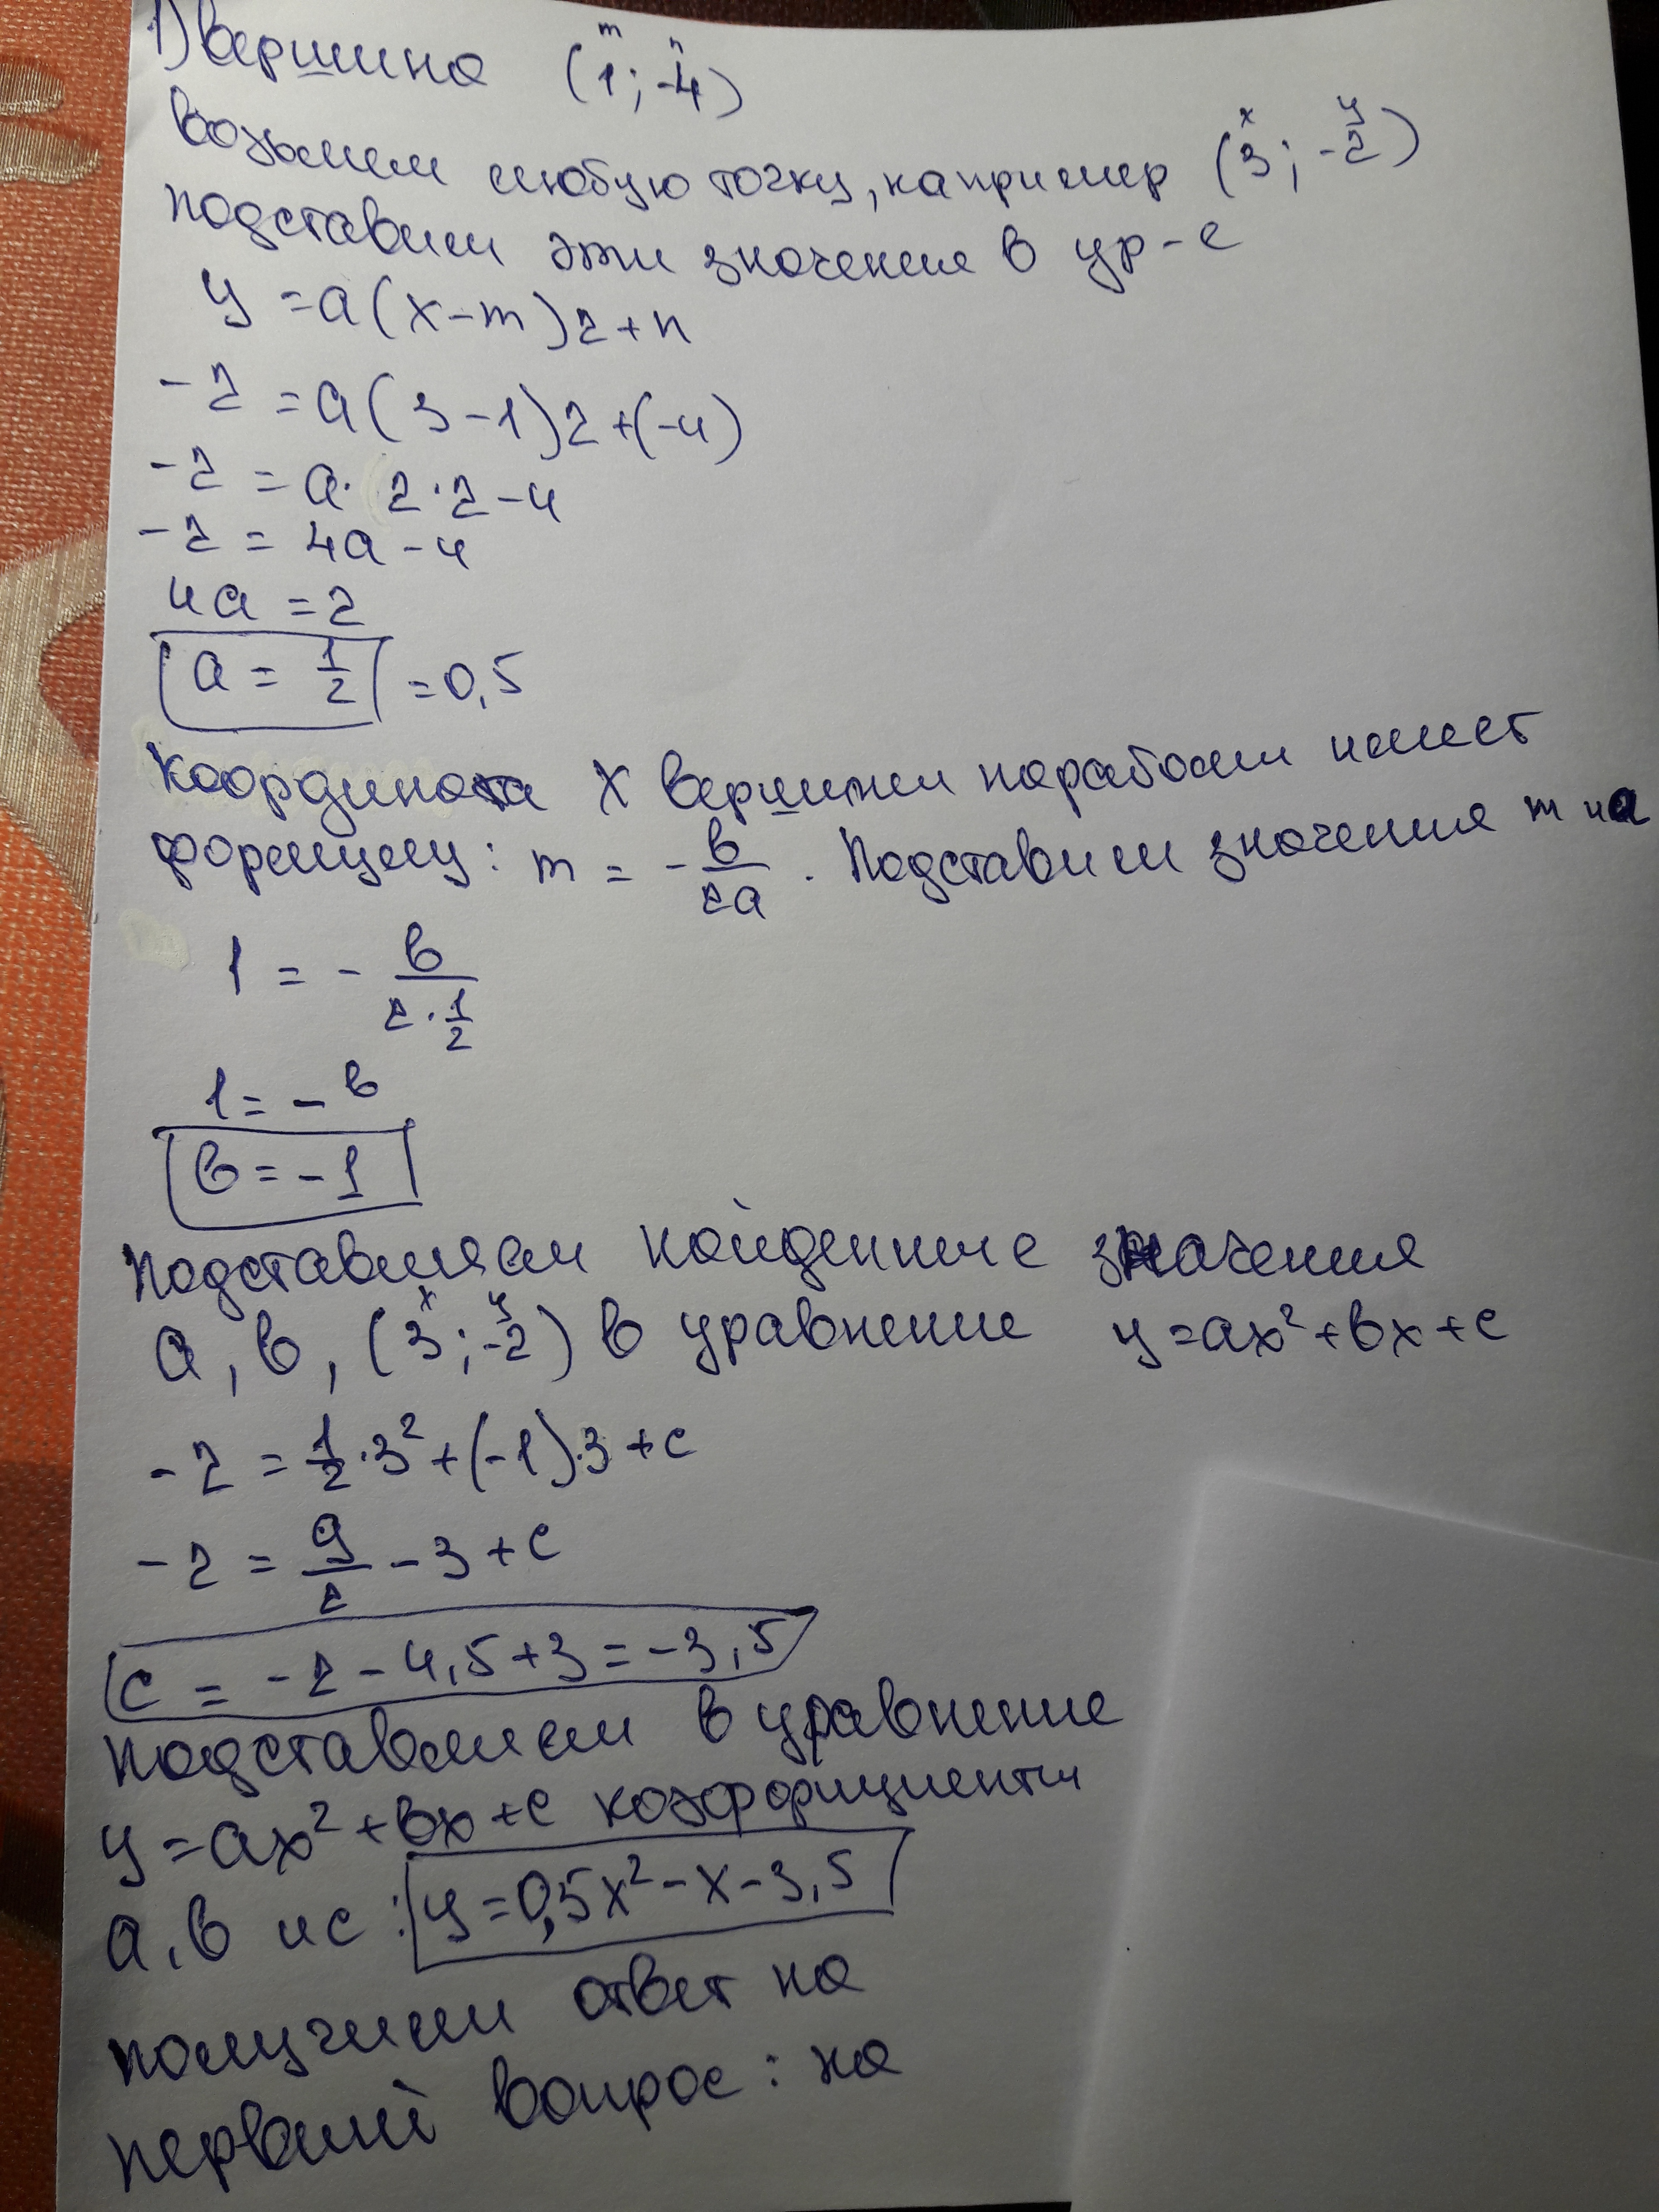 1) Вершина (1; -4)
m n
Возьмем любую точку, например (3; -2)
x y
подставим эти значение в ур-е
y = a(x-m)2+n
-2 = a(3-1)2+(-4)
-2 = a· 2·2-4
-2 = 4a-4
4a = 2
a = 1/2 = 0,5
Координата X вершины параболы имеет
формулу: m = - в/2a . Подставим значения m и a
1 = - в/2·1/2
1 = - в
в = -1
Подставляем найденные значения
a, в, (3; -2) в уравнение y=ax²+вx+c
x y
-2 = 1/2·3²+(-1)·3+c
-2 = 9/2 -3+c
c = -2-4,5+3=-3,5
подставляем в уравнение
y=ax²+вx+c коэффициенты
a, в и c: y=0,5x²-x-3,5
получили ответ на
первый вопрос: на